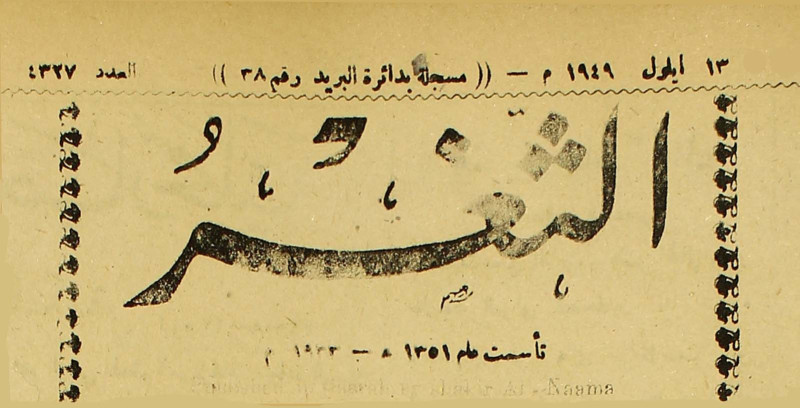 ١٣ ايلول ١٩٤٩ م — (( مسجلة بدائرة البريد رقم ٣٨ )) العدد ٤٣٢٧
الثغر
تأسست عام ١٣٥١ ه — ١٩٣٣ م
At-Naama